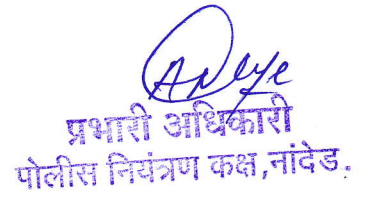 प्रभारी अधिकारी
पोलीस नियंत्रण कक्ष,नांदेड.